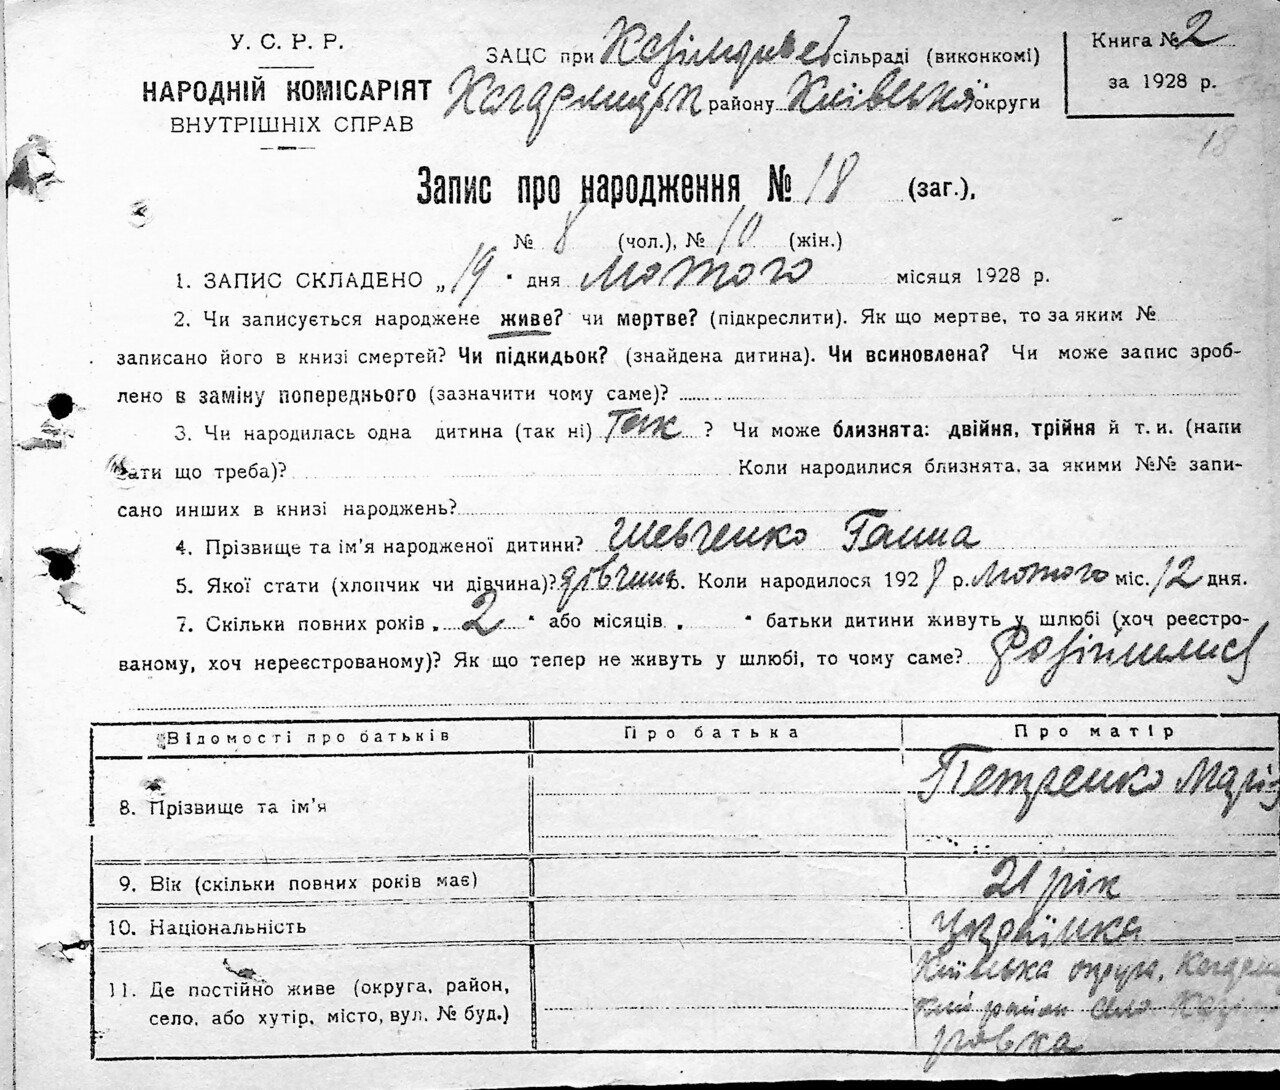 У. С. Р. Р.
НАРОДНІЙ КОМІСАРІЯТ
ВНУТРІШНІХ СПРАВ
ЗАЦС при сільраді (виконкомі)
району Київська округи
Книга № 2
за 1928 р.
18
Запис про народження № 18 (заг.),
№ 8 (чол.), № 10 (жін.)
1. ЗАПИС СКЛАДЕНО „19" дня лютого місяця 1928 р.
2. Чи записується народжене живе? чи мертве? (підкреслити). Як що мертве, то за яким №
записано його в книзі смертей? Чи підкидьок? (знайдена дитина). Чи всиновлена? Чи може запис зроб-
лено в заміну попереднього (зазначити чому саме)?
3. Чи народилась одна дитина (так ні) Так ? Чи може близнята: двійня, трійня й т. и. (напи
сати що треба)? Коли народилися близнята, за якими №№ запи-
сано инших в книзі народжень?
4. Прізвище та ім'я народженої дитини? Шевченко Ганна
5. Якої стати (хлопчик чи дівчина)? дівчина. Коли народилося 1928 р. Лютого міс. 12 дня.
7. Скільки повних років „ 2 " або місяців „ " батьки дитини живуть у шлюбі (хоч реєстро-
ваному, хоч нереєстрованому)? Як що тепер не живуть у шлюбі, то чому саме? Розійшлися
Відомості про батьків Про батька Про матір
8. Прізвище та ім'я Петренко Марія
9. Вік (скільки повних років має) 21 рік
10. Національність Українка
11. Де постійно живе (округа, район,
село, або хутір, місто, вул. № буд.)
Київська округа, Кагарли
кий район село